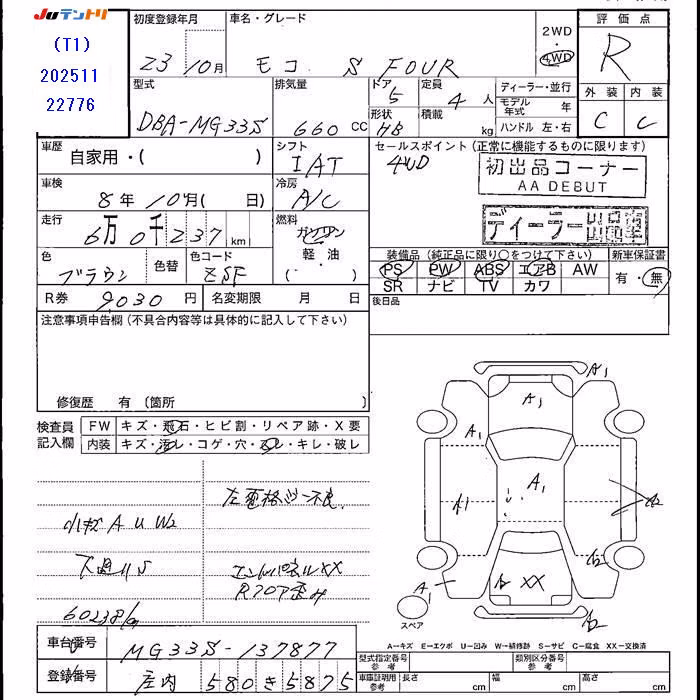 Juテントリ
(T1)
202511
22776
初度登録年月
23 10月
車名・グレード
モコ S FOUR
2WD
4WD
評価点
R
型式
DBA-MG33S
排気量
660 CC
ドア
5
形状
HB
定員
4 人
積載
kg
ディーラー・並行
モデル年式 年
ハンドル 左・右
外装 内装
C C
車歴
自家用・( )
シフト
IAT
セールスポイント (正常に機能するものに限ります)
4WD
初出品コーナー
AA DEBUT
車検
8年 10月( 日)
冷房
A/C
走行
6万 0千 237 km
燃料
ガソリン
軽・油
( ・ )
ディーラー
色
ブラウン
色替
色コード
ZSF
装備品 (純正品に限り○をつけて下さい)
PS PW ABS エアB AW
SR ナビ TV カワ
新車保証書
有・無
R券 9,030 円
名変期限 月 日
後日品
注意事項申告欄 (不具合内容等は具体的に記入して下さい)
修復歴 有 〔箇所 〕
検査員記入欄
FW キズ・飛石・ヒビ割・リペア跡・X要
内装 キズ・汚レ・コゲ・穴・スレ・キレ・破レ
左電格ミラー不良
小キズ A U W2
下廻りS
エンドパネルXX
Rフロア歪み
60238
A1
A1
A1
A1
A2
A2
A2
XX
A1
A2
スペア
A=キズ E=エクボ U=凹み W=補修跡 S=サビ C=腐食 XX=交換済
車台番号
MG33S-137877
登録番号
庄内 580 き 5875
型式指定番号
参考
類別区分番号
参考
車庫証明用
参考
長さ cm
幅 cm
高さ cm